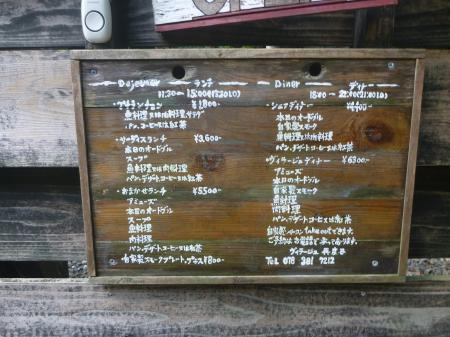 Dejeuner ランチ
11:30 ～ 15:00(13:30LO)
・プチランチ ¥1,800-
魚料理又は肉料理, サラダ
パン, コーヒー又は紅茶
・サーディスランチ ¥3,600-
本日のオードブル
スープ
魚料理又は肉料理
パン, デザート, コーヒー又は紅茶
・おまかせランチ ¥5500-
アミューズ
本日のオードブル
スープ
魚料理
肉料理
パン, デザート, コーヒー又は紅茶
・自家製スモークプレート, プラス¥800-
Diner ディナー
18:00 ～ 22:00(21:00LO)
・シェフディナー
本日のオードブル
自家製スモーク
魚料理又は肉料理
パン, デザート, コーヒー又は紅茶
・ヴィラージュディナー ¥6300-
アミューズ
自家製スモーク
魚料理
肉料理
パン, デザート, コーヒー又は紅茶
自家製 take outできます。
ご予約はお電話で承っております。
ヴィラージュ
TEL 078 381 7212